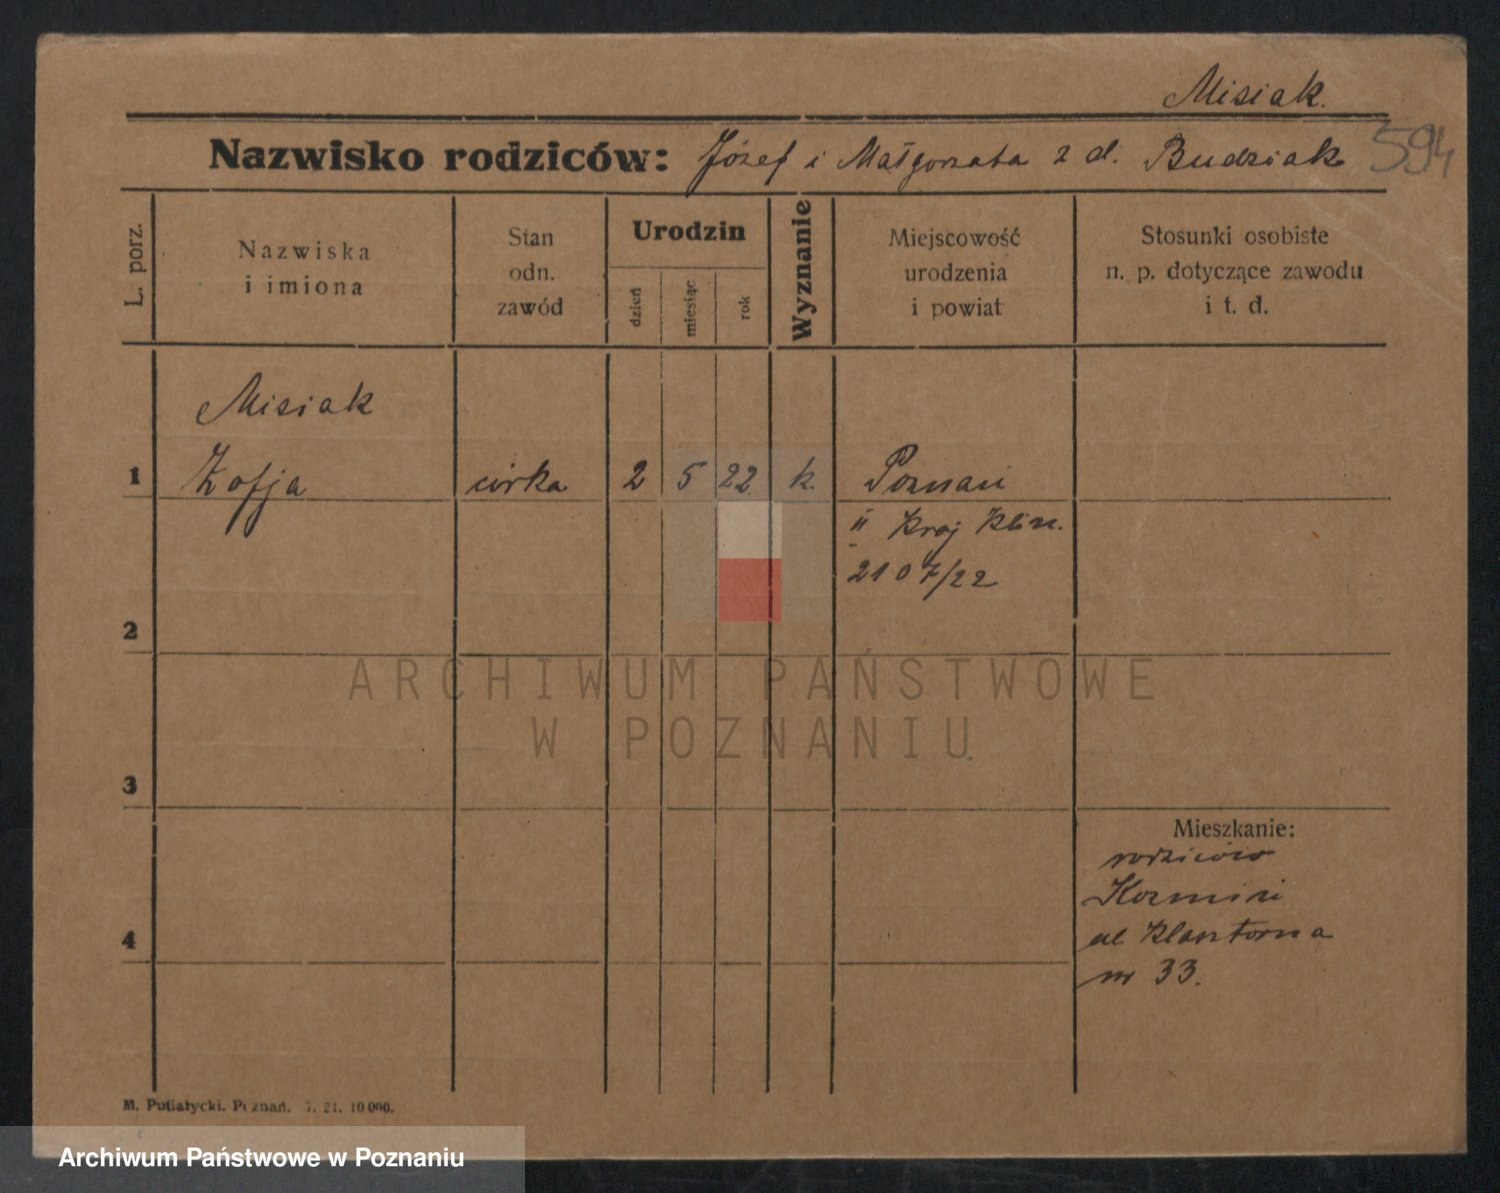 Misiak.
Nazwisko rodziców: Józef i Małgorzata z d. Budziak 594
L. porz.
Nazwiska
i imiona
Stan
odn.
zawód
Urodzin
dzień
miesiąc
rok
Wyznanie
Miejscowość
urodzenia
i powiat
Stosunki osobiste
n. p. dotyczące zawodu
i t. d.
Misiak
1 Zofja córka 2 5 22 k. Poznań
II Kraj Klin.
2107/22
2
ARCHIWUM PAŃSTWOWE
W POZNANIU
3
Mieszkanie:
rodziców
Kozmin
4
ul Klasztorna
nr 33.
M. Putiatycki. Poznań. 7. 21. 10 000.
Archiwum Państwowe w Poznaniu